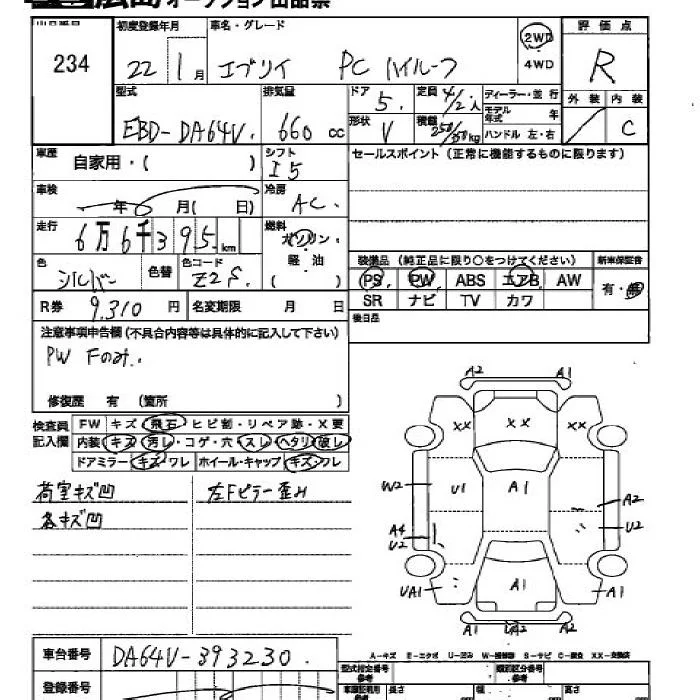 広島オークション出品票
出品番号 初度登録年月 車名・グレード 評価点
234 22年1月 エブリイ PC ハイルーフ 2WD R
4WD
型式 排気量 ドア 5. 定員 4/2人 ディーラー・並行 外装 内装
EBD-DA64V. 660 cc モデル年式 年
形状 V 積載 250/350kg ハンドル 左・右 / C
車歴 自家用・( ) シフト I5 セールスポイント(正常に機能するものに限ります)
車検 年 月( 日) 冷房 AC.
走行 6万6千395.km 燃料 ガソリン・
軽・油
( )
装備品(純正品に限り○をつけてください) 新車保証書
色 シルバー 色替 色コード Z2S.
PS PW ABS エアB AW 有・無
SR ナビ TV カワ
R券 9,310円 名変期限 月 日
後日品
注意事項申告欄(不具合内容等は具体的に記入して下さい)
PW Fのみ.
修復歴 有(箇所 )
検査員記入欄 FW キズ・飛石・ヒビ割・リペア跡・X要
内装 キズ・汚レ・コゲ・穴・スレ・ヘタリ・破レ
ドアミラー キズ・ワレ ホイール・キャップ キズ・ワレ
荷室キズ凹 左Fピラー歪み
各キズ凹
A2 A1
XX XX XX
W2 U1 A1 A2
A4 U2
U2
UA1 A1 A1
A1 UA2 A2
A-キズ E-エクボ U-凹み W-補修跡 S-サビ C-腐食 XX-交換済
車台番号 DA64V-393230.
型式指定番号 類別区分番号
登録番号
長さ 幅 高さ